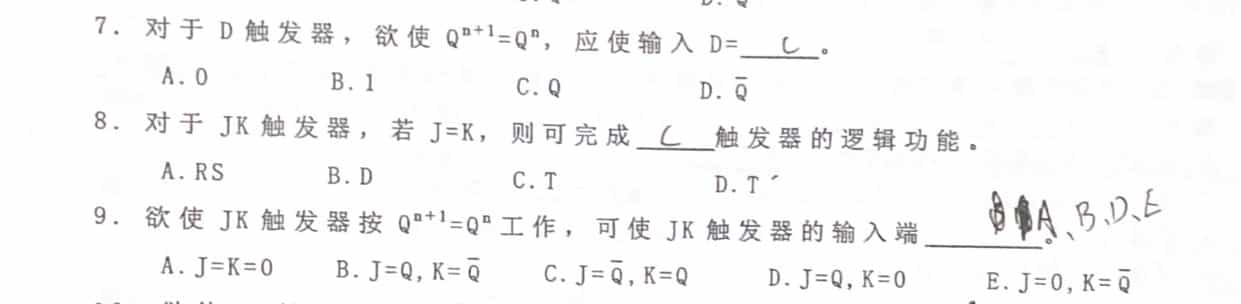 7. 对于 D 触发器，欲使 Qⁿ⁺¹=Qⁿ，应使输入 D= C 。
A.0 B.1 C.Q D.Q̅
8. 对于 JK 触发器，若 J=K，则可完成 C 触发器的逻辑功能。
A.RS B.D C.T D.T´
9. 欲使 JK 触发器按 Qⁿ⁺¹=Qⁿ 工作，可使 JK 触发器的输入端 A、B、D、E 。
A.J=K=0 B.J=Q,K=Q̅ C.J=Q̅,K=Q D.J=Q,K=0 E.J=0,K=Q̅